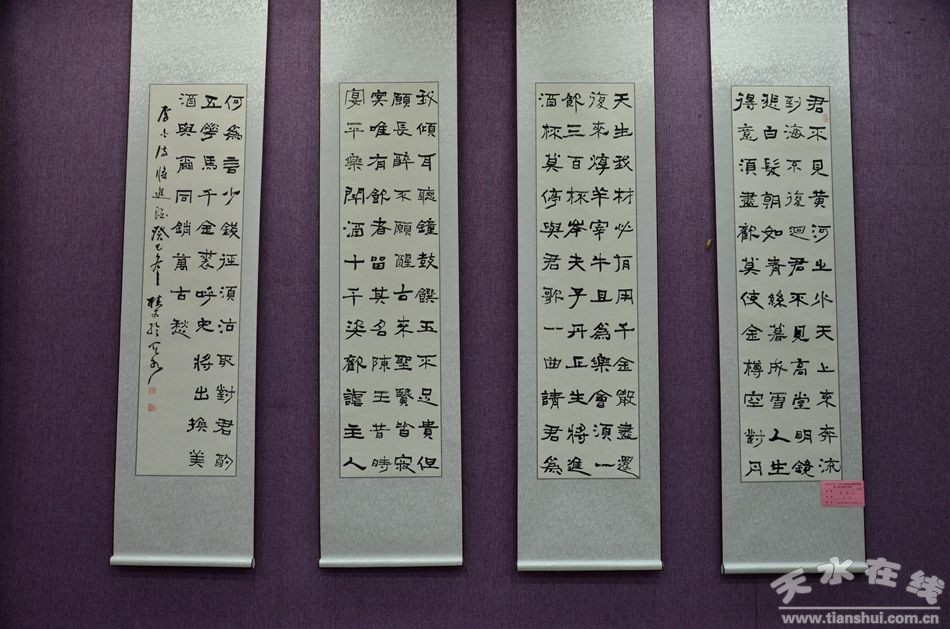 君不見黃河之水天上來奔流
到海不復迴君不見高堂明鏡
悲白髮朝如青絲暮成雪人生
得意須盡歡莫使金樽空對月
天生我材必有用千金散盡還
復來烹羊宰牛且為樂會須一
飲三百杯岑夫子丹丘生將進
酒杯莫停與君歌一曲請君為
我傾耳聽鐘鼓饌玉不足貴但
願長醉不願醒古來聖賢皆寂
寞唯有飲者留其名陳王昔時
宴平樂鬥酒十千恣歡謔主人
何為言少錢徑須沽取對君酌
五花馬千金裘呼兒將出換美
酒與爾同銷萬古愁
李白詩將進酒癸巳年
天水在线
www.tianshui.com.cn